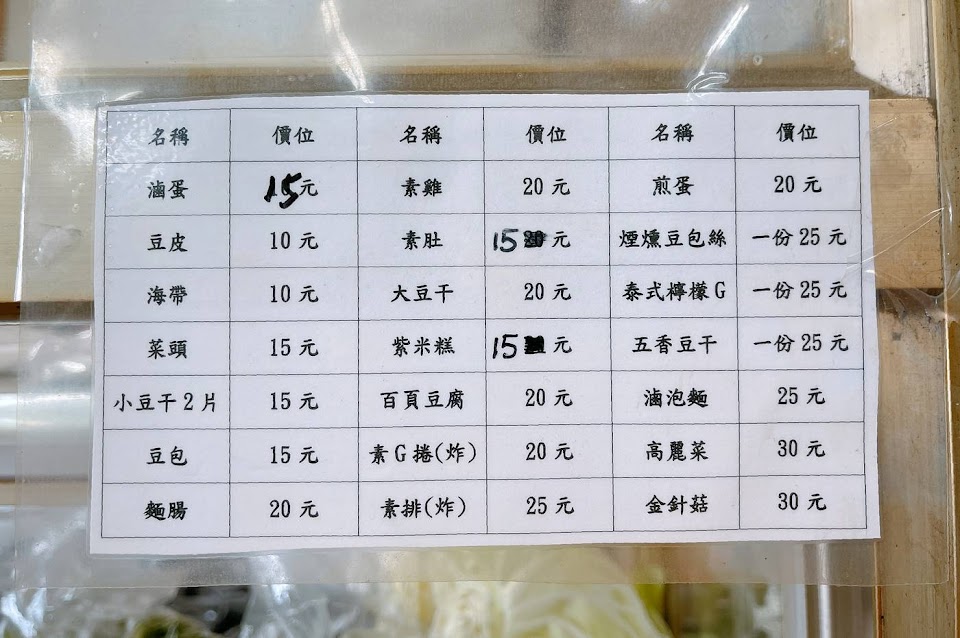 名稱 價位 名稱 價位 名稱 價位
滷蛋 15元 素雞 20元 煎蛋 20元
豆皮 10元 素肚 15元 煙燻豆包絲 一份25元
海帶 10元 大豆干 20元 泰式檸檬G 一份25元
菜頭 15元 紫米糕 15元 五香豆干 一份25元
小豆干2片 15元 百頁豆腐 20元 滷泡麵 25元
豆包 15元 素G捲(炸) 20元 高麗菜 30元
麵腸 20元 素排(炸) 25元 金針菇 30元